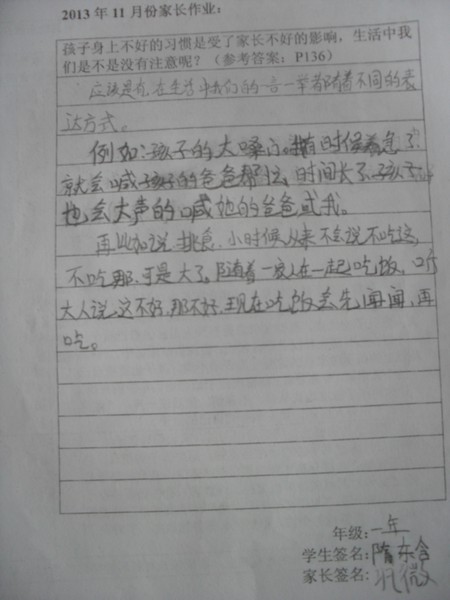 2013年11月份家长作业：
孩子身上不好的习惯是受了家长不好的影响，生活中我
们是不是没有注意呢？（参考答案：P136）
应该是有，在生活中我们的一言一举都随着不同的表
达方式。
例如：孩子的大嗓门，有时候着急了
就会喊孩子的爸爸帮忙，时间长了，孩子
也会大声的喊她的爸爸或我。
再比如说挑食，小时候从来不会说不吃这，
不吃那，可是大了，随着一家人在一起吃饭，听
大人说，这不好，那不好，现在吃饭会先闻闻，再
吃。
年级：一年
学生签名：隋东含
家长签名：微